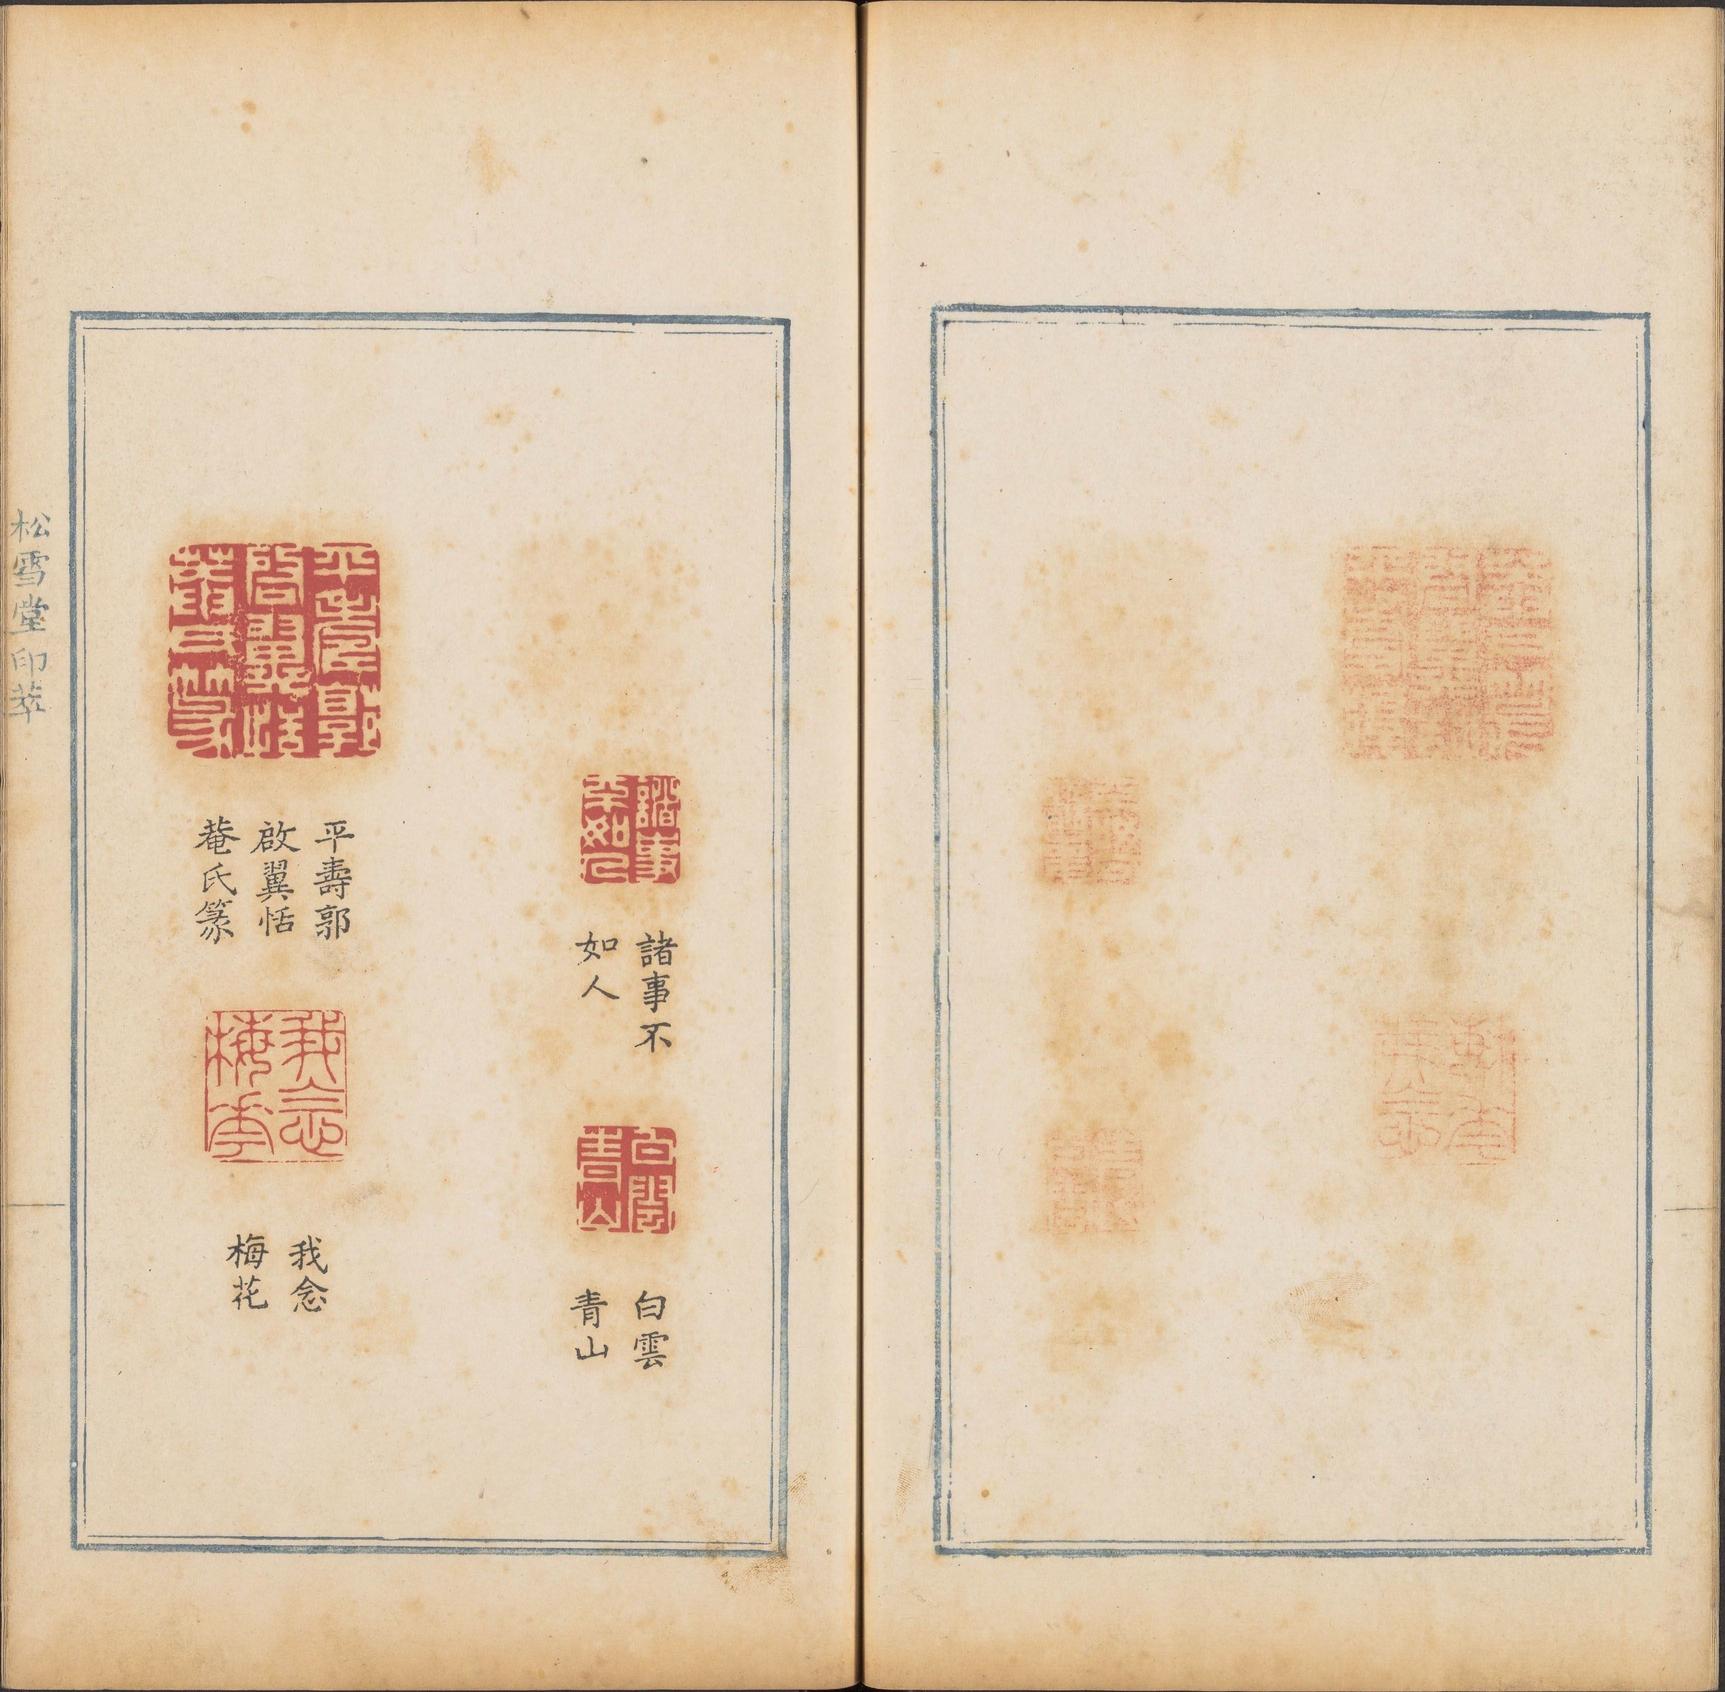 諸事不
如人
白雲
青山
平壽郭
啟翼恬
菴氏篆
我念
梅花
松雪堂印萃